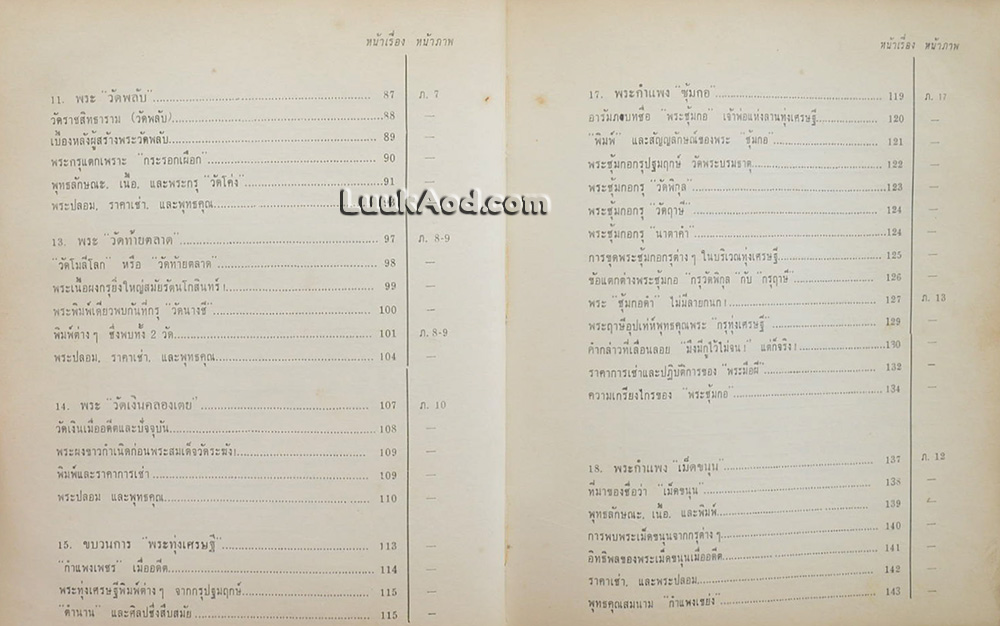 หน้าเรื่อง หน้าภาพ
11. พระ "วัดพลับ" 87 ภ. 7
วัดราชสิทธาราม (วัดพลับ) 88 —
เบื้องหลังผู้สร้างพระวัดพลับ 89 —
พระกรุแตกเพราะ "กระรอกเผือก" 90 —
พุทธลักษณะ, เนื้อ, และพระกรุ "วัดโค่ง" 91 —
พระปลอม, ราคาเช่า, และพุทธคุณ
LuukAod.com
13. พระ "วัดท้ายตลาด" 97 ภ. 8-9
"วัดโมลีโลก" หรือ "วัดท้ายตลาด" 98 —
พระเนื้อผงกรุยิ่งใหญ่สมัยรัตนโกสินทร์! 99 —
พระพิมพ์เดียวพบกันที่กรุ "วัดนางชี" 100 —
พิมพ์ต่างๆ ซึ่งพบทั้ง 2 วัด 101 ภ.8-9
พระปลอม, ราคาเช่า, และพุทธคุณ 104 —
14. พระ "วัดเงินคลองเตย" 107 ภ. 10
วัดเงินเมื่ออดีตและปัจจุบัน 108 —
พระผงขาวกำเนิดก่อนพระสมเด็จวัดระฆัง! 109 —
พิมพ์และราคาการเช่า 109 —
พระปลอม และพุทธคุณ 110 —
15. ขบวนการ "พระทุ่งเศรษฐี" 113 —
"กำแพงเพชร" เมื่ออดีต 114 —
พระทุ่งเศรษฐีพิมพ์ต่างๆ จากกรุปฐมฤกษ์ 115 —
"ตำนาน" และศิลปซึ่งสืบสมัย 115 —
หน้าเรื่อง หน้าภาพ
17. พระกำแพง "ซุ้มกอ" 119 ภ. 17
อารัมภบทชื่อ "พระซุ้มกอ" เจ้าพ่อแห่งลานทุ่งเศรษฐี 120 —
"พิมพ์" และสัญญลักษณ์ของพระ "ซุ้มกอ" 121 —
พระซุ้มกอกรุปฐมฤกษ์ วัดพระบรมธาตุ 122 —
พระซุ้มกอกรุ "วัดพิกุล" 123 —
พระซุ้มกอกรุ "วัดฤาษี" 124 —
พระซุ้มกอกรุ "นาตาคำ" 124 —
การขุดพระซุ้มกอกรุต่างๆ ในบริเวณทุ่งเศรษฐี 125 —
ข้อแตกต่างพระซุ้มกอ "กรุวัดพิกุล" กับ "กรุฤาษี" 126 —
พระ "ซุ้มกอดำ" ไม่มีลายกนก! 127 ภ. 13
พระฤาษีอุปเท่ห์พุทธคุณพระ "กรุทุ่งเศรษฐี" 129 —
คำกล่าวที่เลื่อนลอย "มึงมีกูไว้ไม่จน!" แต่ก็จริง! 130 —
ราคาการเช่าและปฏิบัติการของ "พระมือผี" 132 —
ความเกรียงไกรของ "พระซุ้มกอ" 134 —
18. พระกำแพง "เม็ดขนุน" 137 ภ. 12
ที่มาของชื่อว่า "เม็ดขนุน" 138 —
พุทธลักษณะ, เนื้อ, และพิมพ์ 139 —
การพบพระเม็ดขนุนจากกรุต่างๆ 140 —
อิทธิพลของพระเม็ดขนุนเมื่ออดีต 141 —
ราคาเช่า, และพระปลอม 142 —
พุทธคุณสมนาม "กำแพงเขย่ง" 143 —